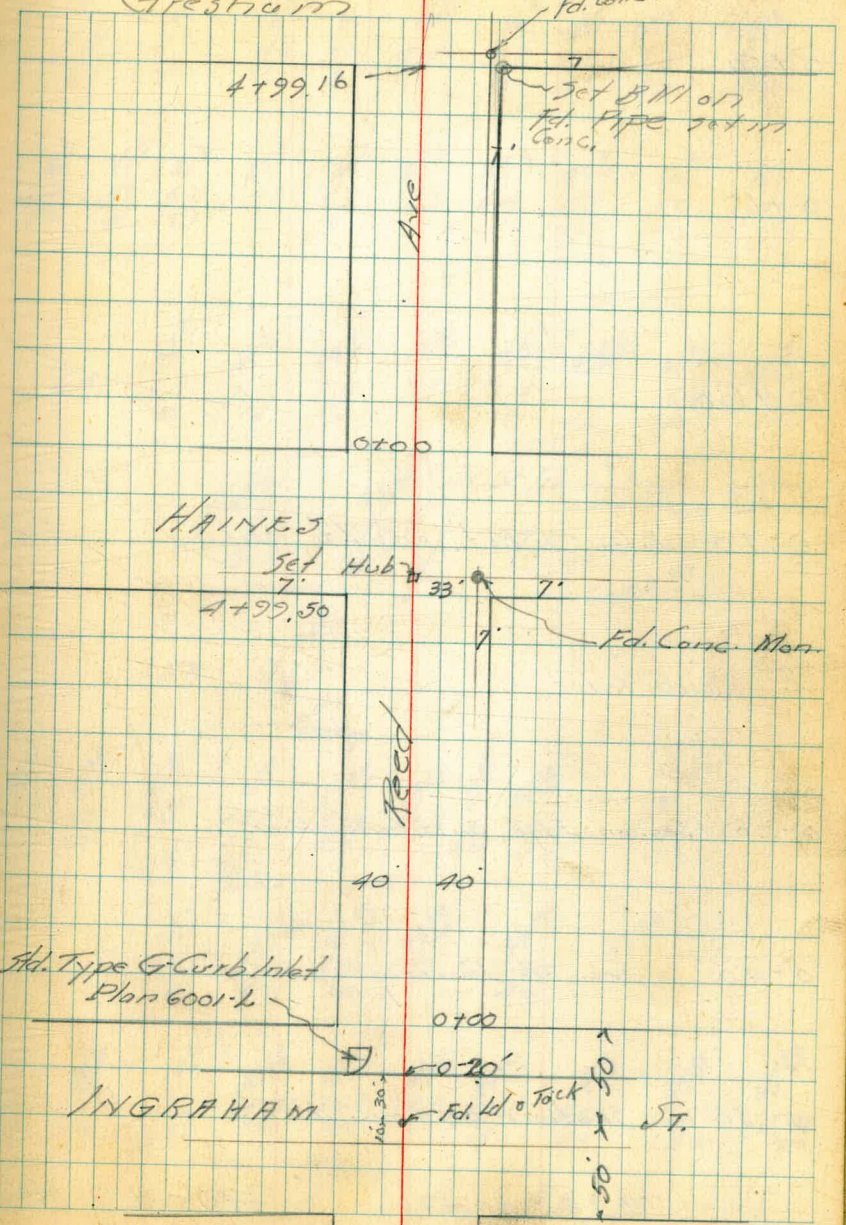 Gresham
Fd. Conc
4+99.16
7
Set BM on
Fd. Pipe set in
Conc.
7'
Ave
0+00
HAINES
Set Hub
7'
33'
7'
4+99.50
7'
Fd. Conc. Mon.
Reed
40'
40'
Std. Type G-Curb Inlet
Plan 6001-L
0+00
0-20'
50'
INGRAHAM
30'
Fd. Ld & Tack
ST.
50'